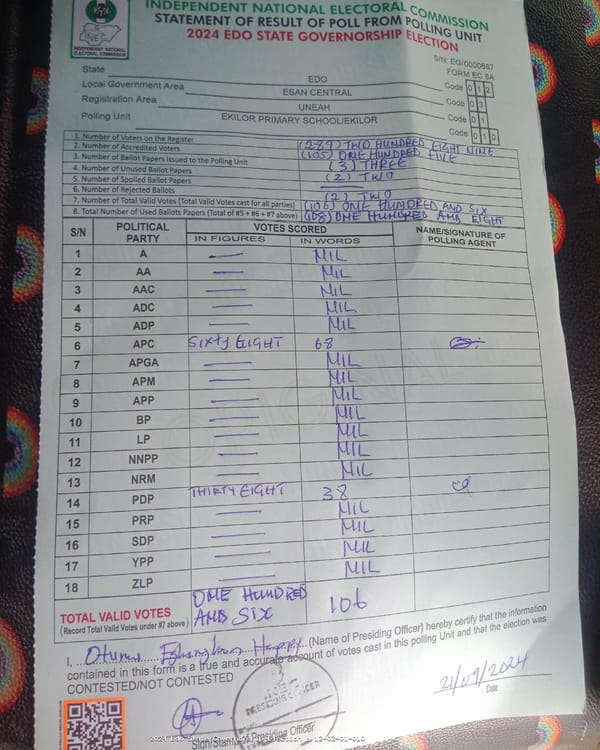 INDEPENDENT NATIONAL ELECTORAL COMMISSION
STATEMENT OF RESULT OF POLL FROM POLLING UNIT
2024 EDO STATE GOVERNORSHIP ELECTION
INEC
INDEPENDENT NATIONAL
ELECTORAL COMMISSION
S/N: EG/0000687
FORM EC 8A
State EDO Code 012
Local Government Area ESAN CENTRAL Code 03
Registration Area UNEAH Code 01
Polling Unit EKILOR PRIMARY SCHOOL/EKILOR Code 010
1. Number of Voters on the Register (289) TWO HUNDRED EIGHT NINE
2. Number of Accredited Voters (105) ONE HUNDRED FIVE
3. Number of Ballot Papers Issued to the Polling Unit
4. Number of Unused Ballot Papers (3) THREE
5. Number of Spoiled Ballot Papers (2) TWO
6. Number of Rejected Ballots (2) TWO
7. Number of Total Valid Votes (Total Valid Votes cast for all parties) (106) ONE HUNDRED AND SIX
8. Total Number of Used Ballots Papers (Total of #5 + #6 + #7 above) (108) ONE HUNDRED AND EIGHT
S/N POLITICAL PARTY VOTES SCORED NAME/SIGNATURE OF POLLING AGENT
IN FIGURES IN WORDS
1 A — NIL
2 AA — NIL
3 AAC — NIL
4 ADC — NIL
5 ADP — NIL
6 APC SIXTY EIGHT 68
7 APGA — NIL
8 APM — NIL
9 APP — NIL
10 BP — NIL
11 LP — NIL
12 NNPP — NIL
13 NRM — NIL
14 PDP THIRTY EIGHT 38
15 PRP — NIL
16 SDP — NIL
17 YPP — NIL
18 ZLP — NIL
TOTAL VALID VOTES ONE HUNDRED AND SIX 106
(Record Total Valid Votes under #7 above)
I, ... Happy (Name of Presiding Officer) hereby certify that the information
contained in this form is a true and accurate account of votes cast in this polling Unit and that the election was
CONTESTED/NOT CONTESTED
21/09/2024
Date
INEC
PRESIDING OFFICER
Sign/Stamp of Presiding Officer